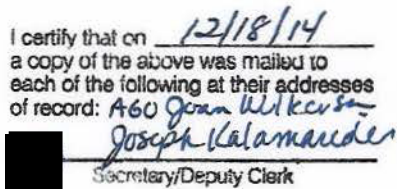 I certify that on 12/18/14
a copy of the above was mailed to
each of the following at their addresses
of record: AGO Joan Wilkerson
Joseph Kalamarides
Secretary/Deputy Clerk